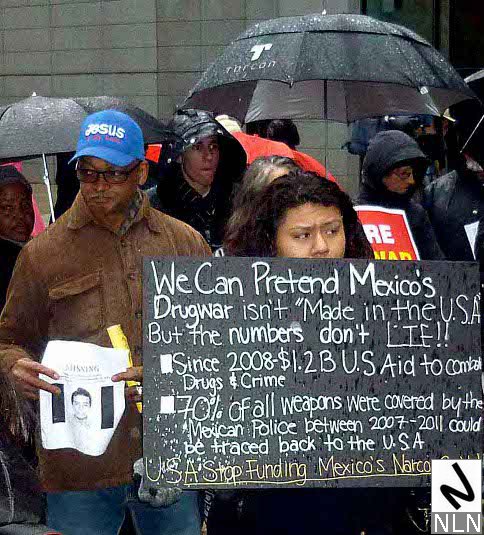 Torcon
Jesus
RE
WAR
MISSING
We Can Pretend Mexico's
Drugwar isn't "Made in the U.S.A
But the numbers don't LIE!!
Since 2008-$1.2B U.S Aid to combat
Drugs & Crime
70% of all weapons were covered by the
Mexican Police between 2007-2011 could
be traced back to the U.S.A
U.S.A Stop Funding Mexico's Narco
N
NLN